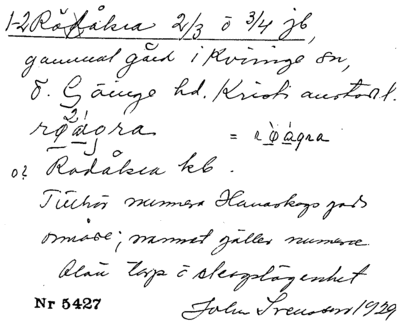 1-2 Rödåkra 2/3 ö 3/4 jb,
gammal gård i Kviinge sn,
Ö. Göinge hd. Kristianstads l.
rǫ̀ágra = rǫ̀ágra
Rödåkra kb.
Tillhör numera Hanaskogs gods
område; namnet gäller numera
blott torp å skogslägenhet
Nr 5427 John Svensson 1929